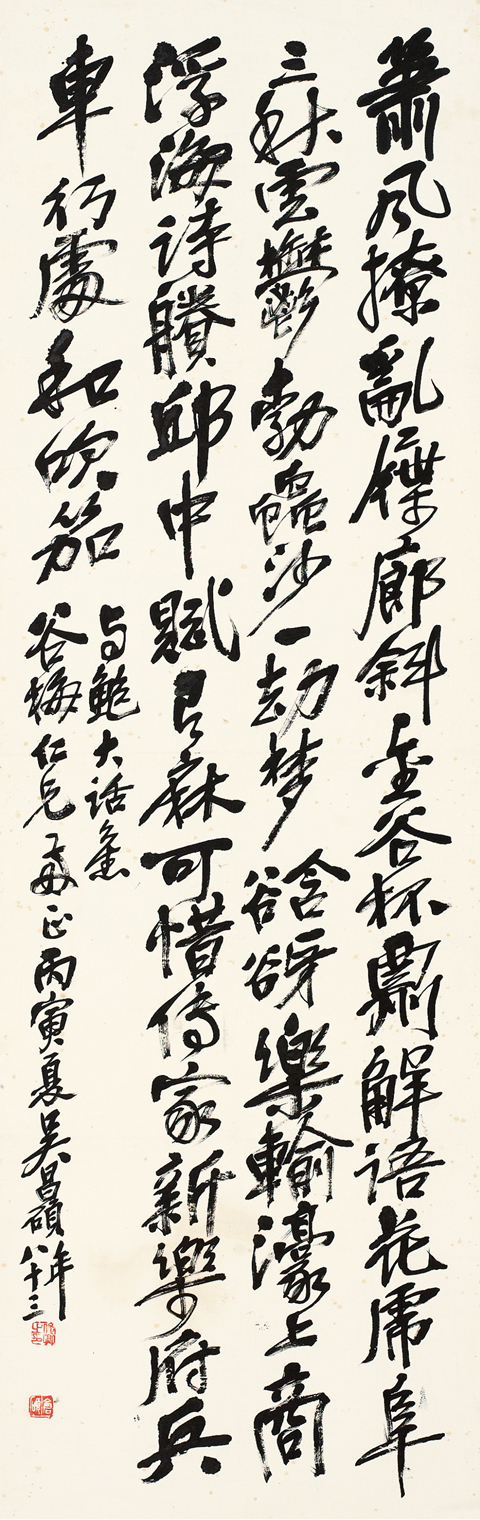 簫風撩亂屧廊斜金谷杯解語花虎阜
三秋雲鬱勃蟲沙一劫夢谽谺樂輸濠上商
浮海詩賸邱中賦有麻可惜傳家新樂府兵
車行處和吹笳
与鮑大話舊
谷梅仁兄屬正丙寅夏吳昌碩年八十三